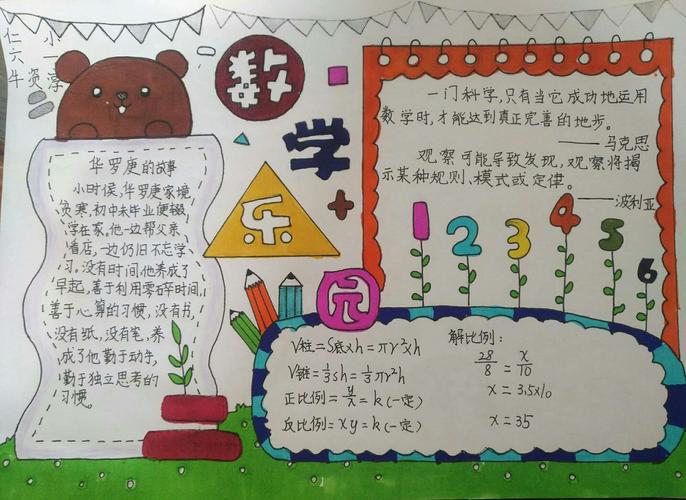 仁六牛
小一资淳
数学乐园
华罗庚的故事
小时候，华罗庚家境
贫寒，初中未毕业便辍
学在家。他一边帮父亲
看店，一边仍旧不忘学
习。没有时间，他养成了
早起，善于利用零碎时间，
善于心算的习惯，没有书，
没有纸，没有笔，养
成了他勤于动手，
勤于独立思考的
习惯。
一门科学，只有当它成功地运用
数学时，才能达到真正完善的地步。
——马克思
观察可能导致发现，观察将揭
示某种规则、模式或定律。
——波利亚
1 2 3 4 5 6
V柱=S底xh=πr²xh
V锥=⅓sh=⅓πr²h
正比例=y/x=k(一定)
反比例=xy=k(一定)
解比例：
28/8 = x/10
x=3.5x10
x=35